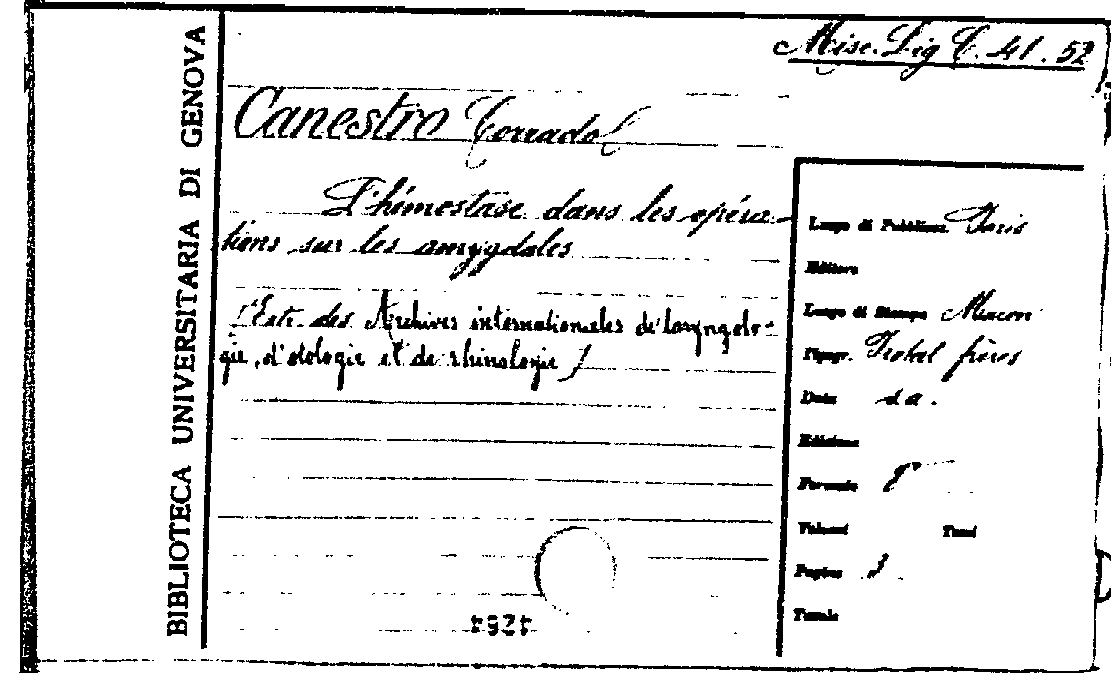 Misc. Lig C. 41. 52
BIBLIOTECA UNIVERSITARIA DI GENOVA
Canestro Corrado
L'hémostase dans les opéra-
tions sur les amygdales
(Estr. des Archives internationales de laryngolo-
gie, d'otologie et de rhinologie)
Luogo di Pubblicaz. Paris
Editore
Luogo di Stampa Macon
Tipogr. Protat frères
Data s.a.
Edizione
Formato 8°
Volumi Tomi
Pagine 3
Tavole